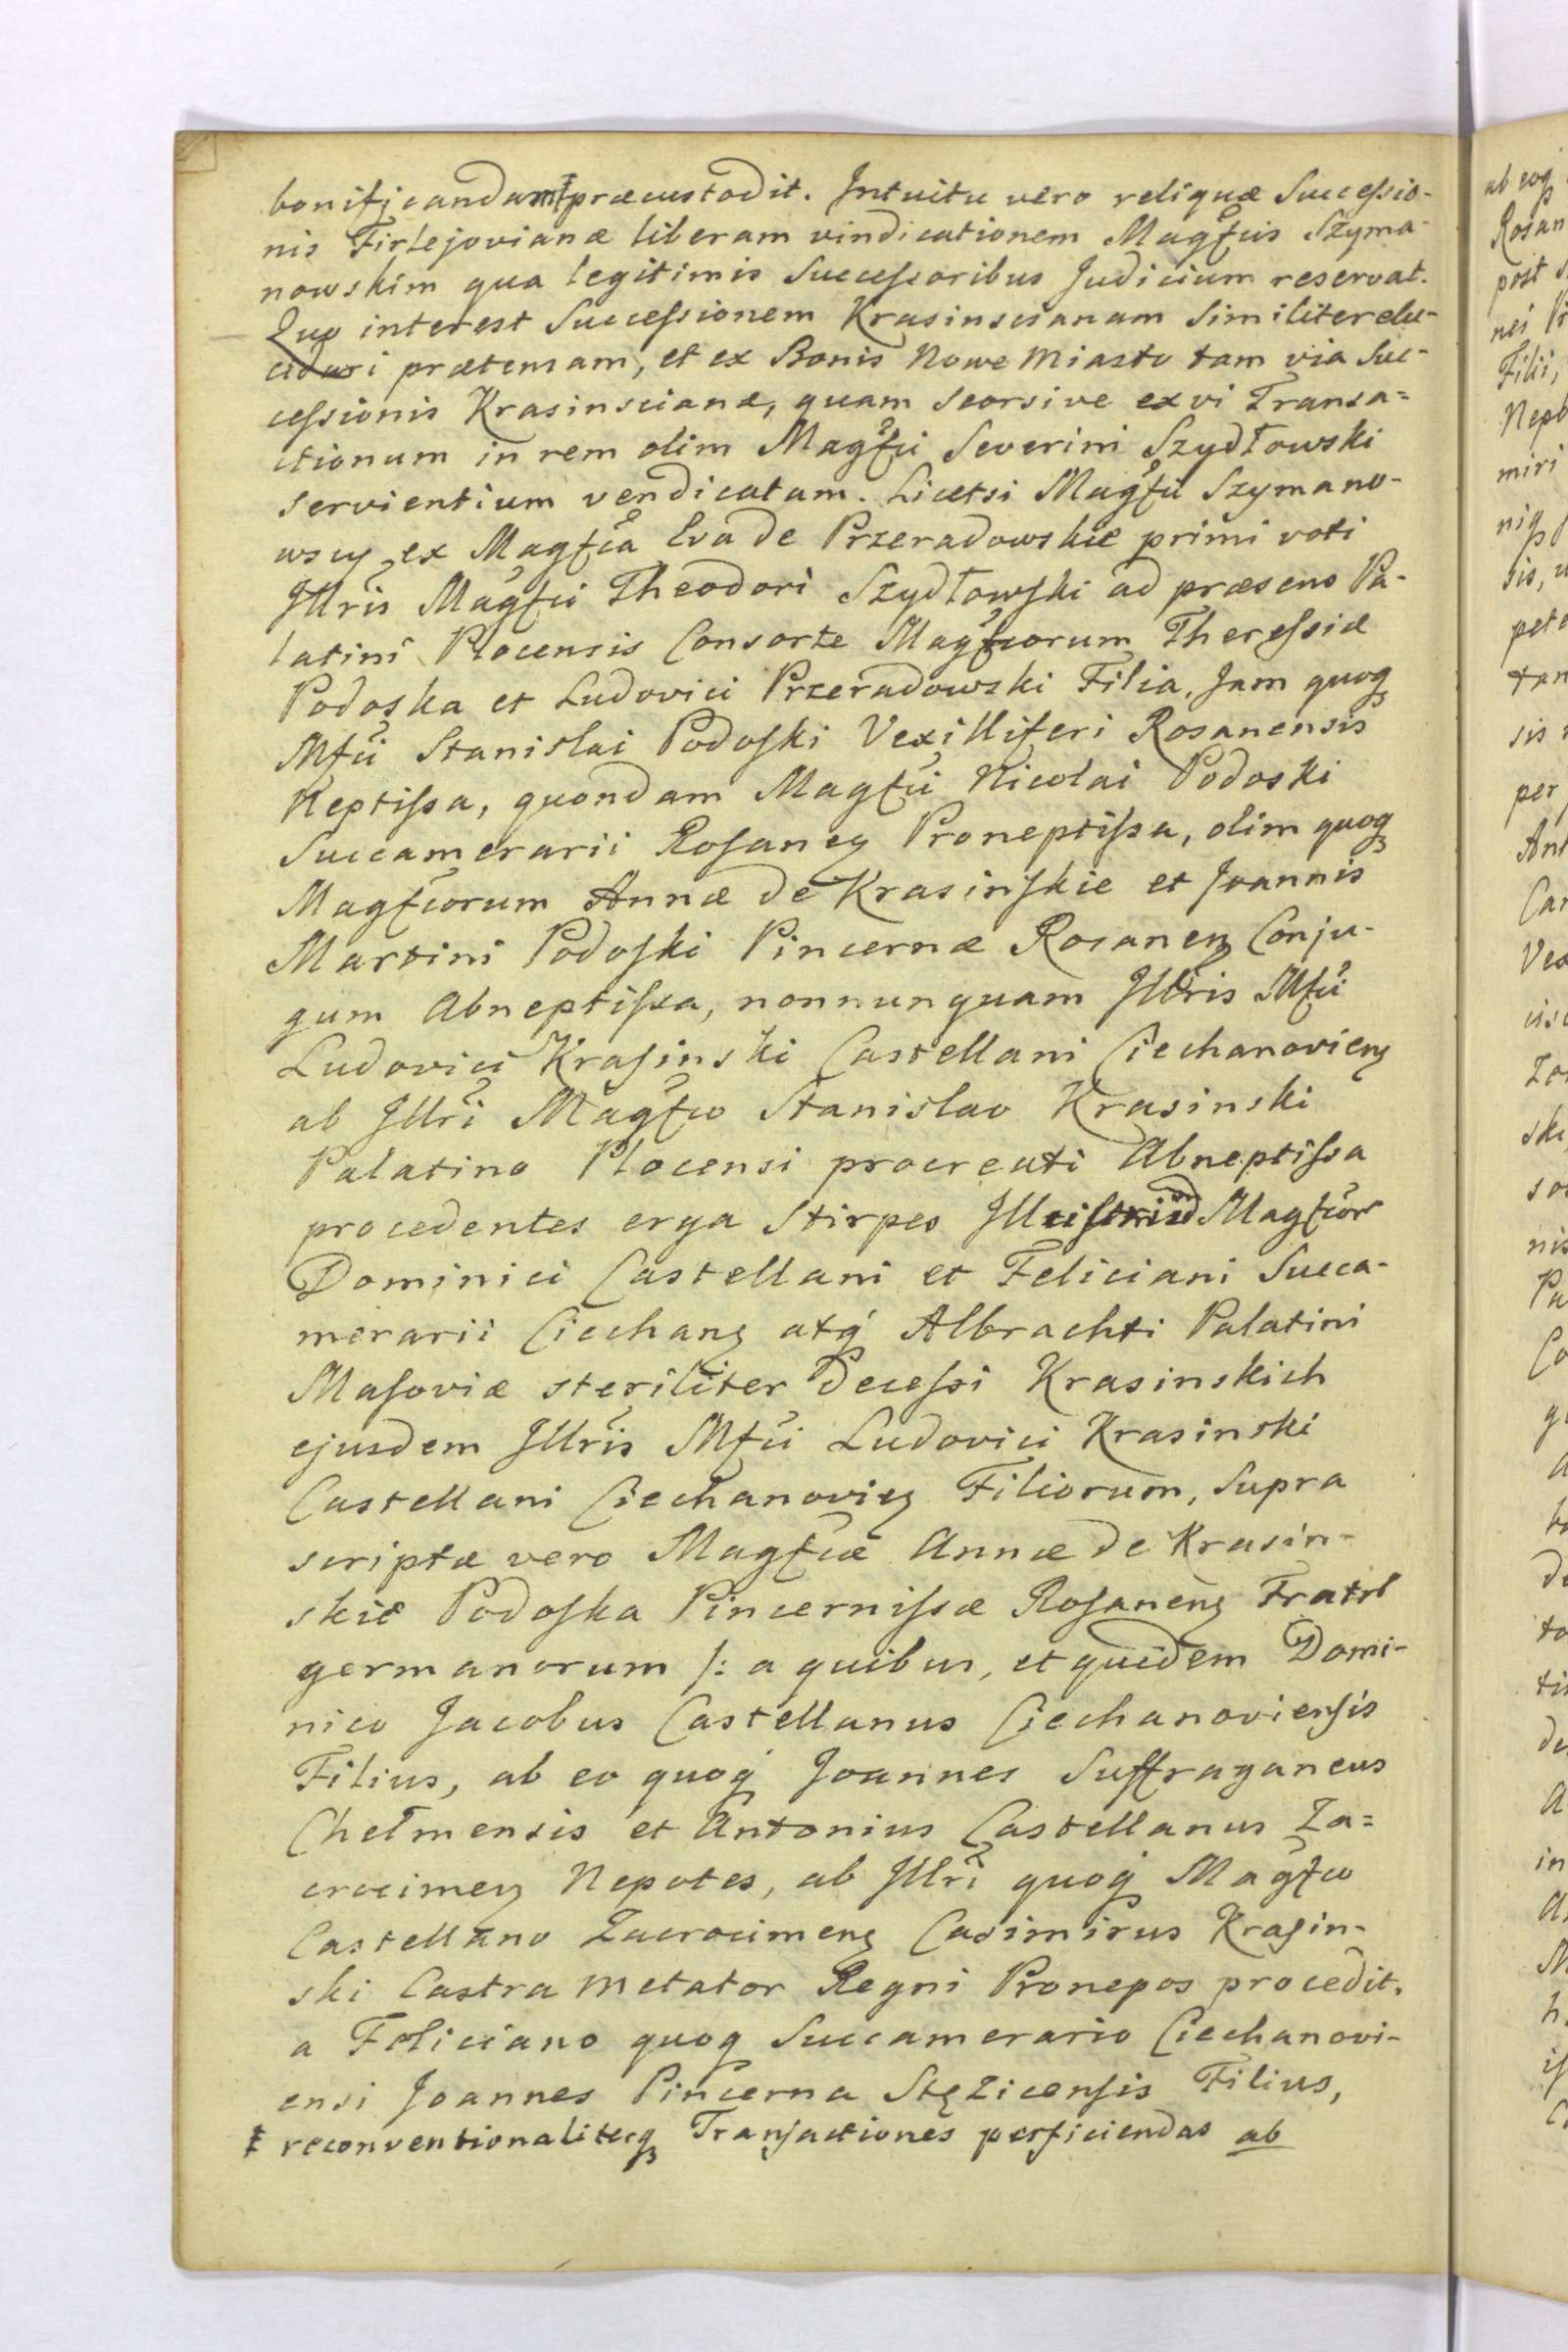 bonificandam ǂ præcustodit. Intuitu vero reliquæ Successio-
nis Firlejovianæ liberam vindicationem Magfcis Szyma-
nowskim qua legitimis Successoribus Judicium reservat.
Quo interest Successionem Krasinscianam Similiter elu-
cidari prætensam, et ex Bonis Nowe Miasto tam via Suc-
cessionis Krasinscianæ, quam seorsive ex vi Transa=
ctionum in rem olim Magfci Severini Szydłowski
servientium vendicatam. Licetsi Magfci Szymano-
wscy ex Magfca Eva de Przeradowskie primi voti
Illris Magfci Theodori Szydłowski ad præsens Pa-
latini Plocensis Consorte Magfcorum Theressiæ
Podoska et Ludovici Przeradowski Filia, Jam quoq
Mfci Stanislai Podoski Vexilliferi Rosanensis
Neptissa, quondam Magfci Nicolai Podoski
Succamerarii Rosaneg Proneptissa, olim quoq
Magfcorum Annæ de Krasinskie et Joannis
Martini Podoski Pincernæ Rosaneg Conju-
gum Abneptissa, nonnunquam Illris Mfci
Ludovici Krasinski Castellani Ciechanovieng
ab Illri Magfco Stanislao Krasinski
Palatino Plocensi procreati Abneptissa
procedentes erga Stirpes Magfcor
Dominici Castellani et Feliciani Succa-
merarii Ciechang atq Albrachti Palatini
Masoviæ steriliter decessi Krasinskich
ejusdem Illris Mfci Ludovici Krasinski
Castellani Ciechanovieg Filiorum, Supra
scriptæ vero Magfcæ Annæ de Krasin-
skie Podoska Pincernissæ Rosaneng Fratr
germanorum /: a quibus, et quidem Domi-
nico Jacobus Castellanus Ciechanoviensis
Filius, ab eo quoq Joannes Suffraganeus
Chełmensis et Antonius Castellanus Za=
crocimeg Nepotes, ab Illri quoq Magfco
Castellano Zacrocimeng Casimirus Krasin-
ski Castra Metator Regni Pronepos procedit.
a Feliciano quoq Succamerario Ciechanovi-
ensi Joannes Pincerna Stęzicensis Filius,
ǂ reconventionaliterq Transactiones perficiendas ab